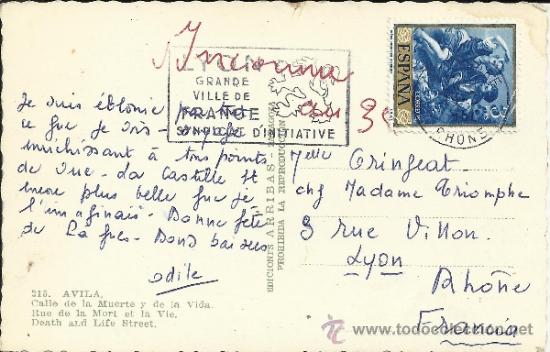 Inconnu
LYON
GRANDE
VILLE DE
FRANCE
SYNDICAT D'INITIATIVE
ESPAÑA
RHONE
Je suis éblouie par tout
ce que je vois - voyage
enrichissant à tous points
de vue - La Castille est
encore plus belle que je
l'imaginais - Bonne fête
de - Bons baisers
odile
215. AVILA.
Calle de la Muerte y de la Vida.
Rue de la Mort et la Vie.
Death and Life Street.
EDICIONES ARRIBAS - ZARAGOZA
PROHIBIDA LA REPRODUCCION
Melle Gringeat
chez Madame Triomphe
3 rue Villon
Lyon
Rhône
Francia
todocoleccion
www.todocoleccion.net